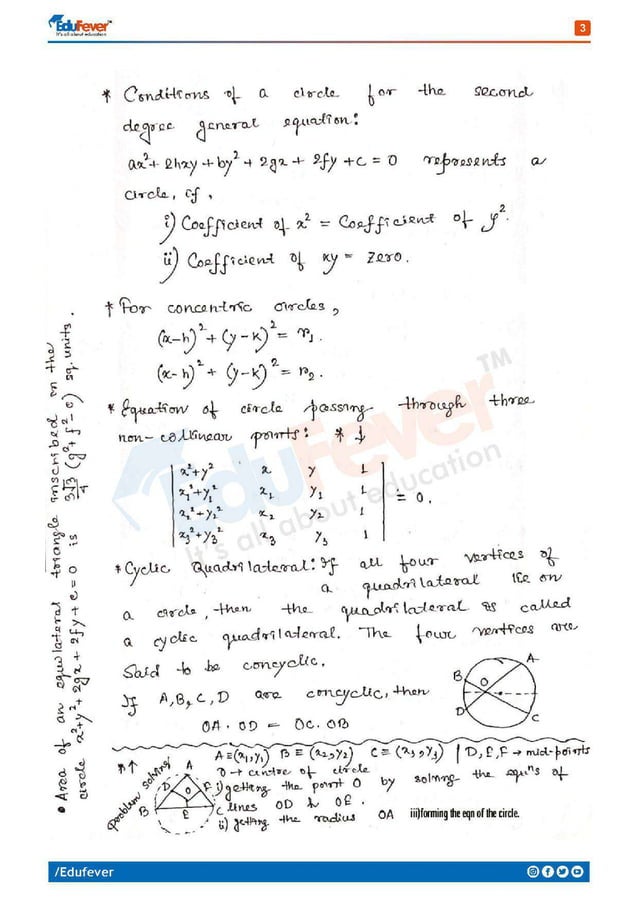 EduFever™
It's all about education
3
* Conditions of a circle for the second
degree general equation:
ax²+2hxy+by²+2gx+2fy+c=0 represents a
circle, if,
i) Coefficient of x² = Coefficient of y².
ii) Coefficient of xy = zero.
* For concentric circles,
(x-h)²+(y-k)²=r₁.
(x-h)²+(y-k)²=r₂.
* Equation of circle passing through three
non-collinear points: * ↓
| x²+y² x y 1 |
| x₁²+y₁² x₁ y₁ 1 |
| x₂²+y₂² x₂ y₂ 1 | = 0.
| x₃²+y₃² x₃ y₃ 1 |
* Cyclic Quadrilateral: If all four vertices of
a quadrilateral lie on
a circle, then the quadrilateral is called
a cyclic quadrilateral. The four vertices are
said to be concyclic.
If A,B,C,D are concyclic, then
OA · OD = OC · OB
A
B
O
D
C
• Area of an equilateral triangle inscribed in the
circle x²+y²+2gx+2fy+c=0 is 3√3/4 (g²+f²-c) sq. units.
EduFever™
It's all about education
*↑
Problem solving:
A≡(x₁,y₁) B≡(x₂,y₂) C≡(x₃,y₃) | D,E,F → mid-points
O → centre of circle
i) getting the point O by solving the eqⁿs of
lines OD & OE.
ii) getting the radius OA iii)forming the eqn of the circle.
A
D
F
O
B
E
C
/Edufever